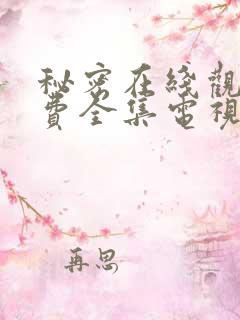 秘密在綫觀
費全集電視
再思